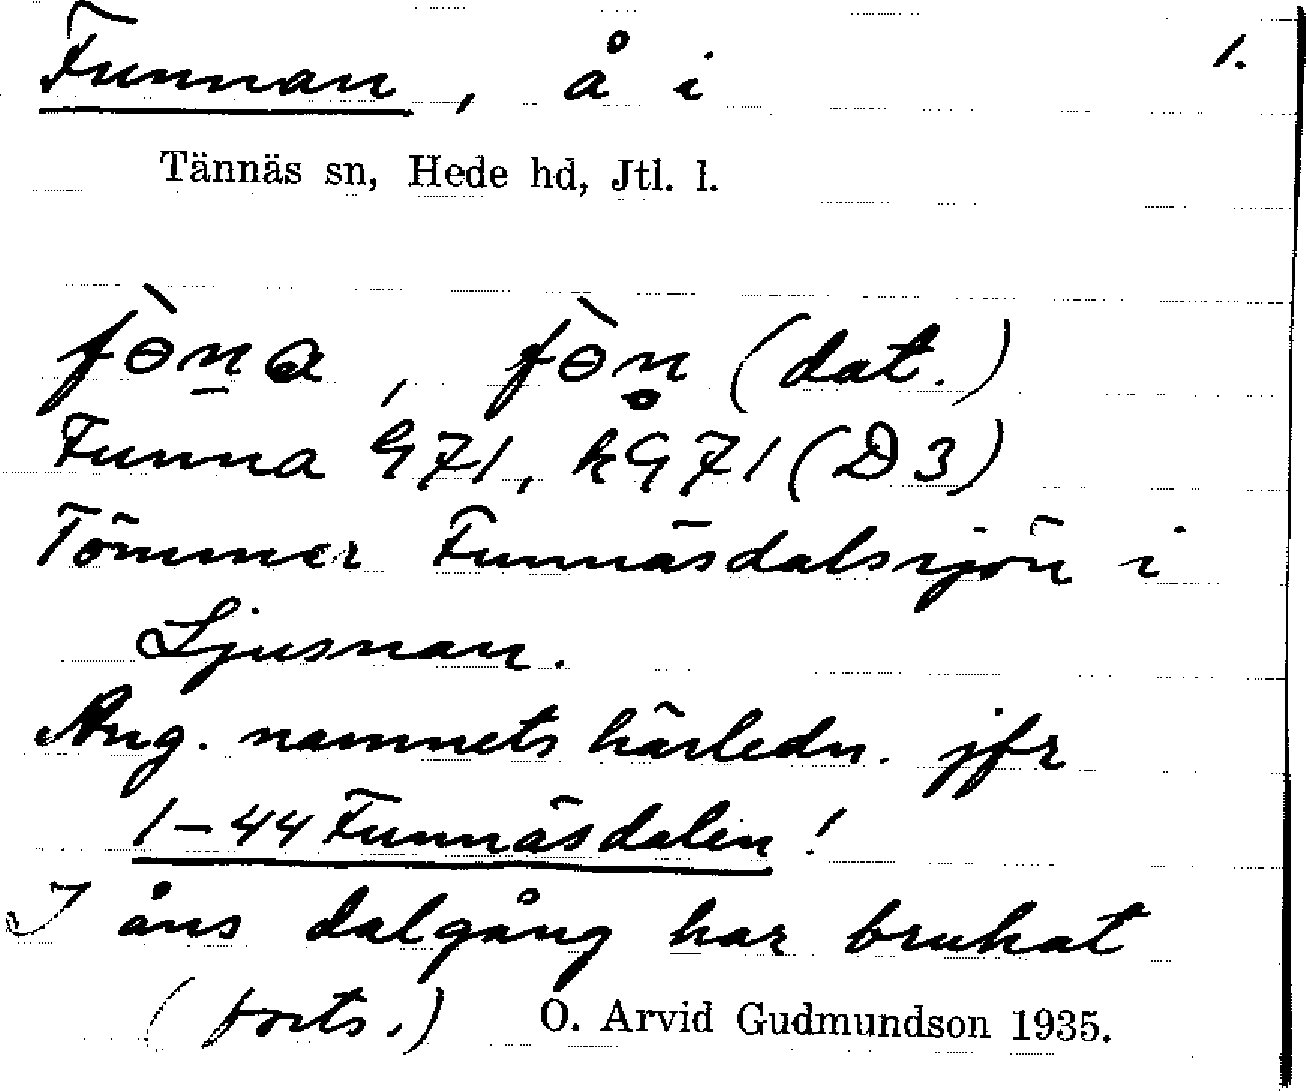 Funnan, å i 1.
Tännäs sn, Hede hd, Jtl. l.
fɵ̀n̲a, fɵ̀n̥ (dat.)
Funna G71, kG71 (D3)
Tömmer Funnäsdalssjön i
Ljusnan.
Ang. namnets härledn. jfr
1-44 Funnäsdalen!
I åns dalgång har brukat
(forts.) O. Arvid Gudmundson 1935.